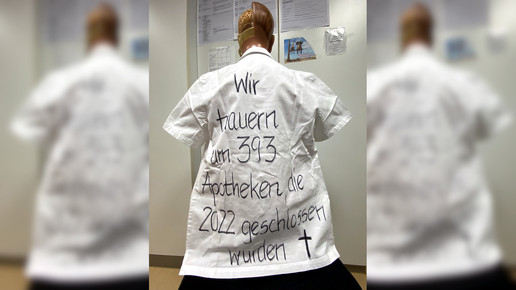 Wir
trauern
um 393
Apotheken, die
2022 geschlossen
wurden †